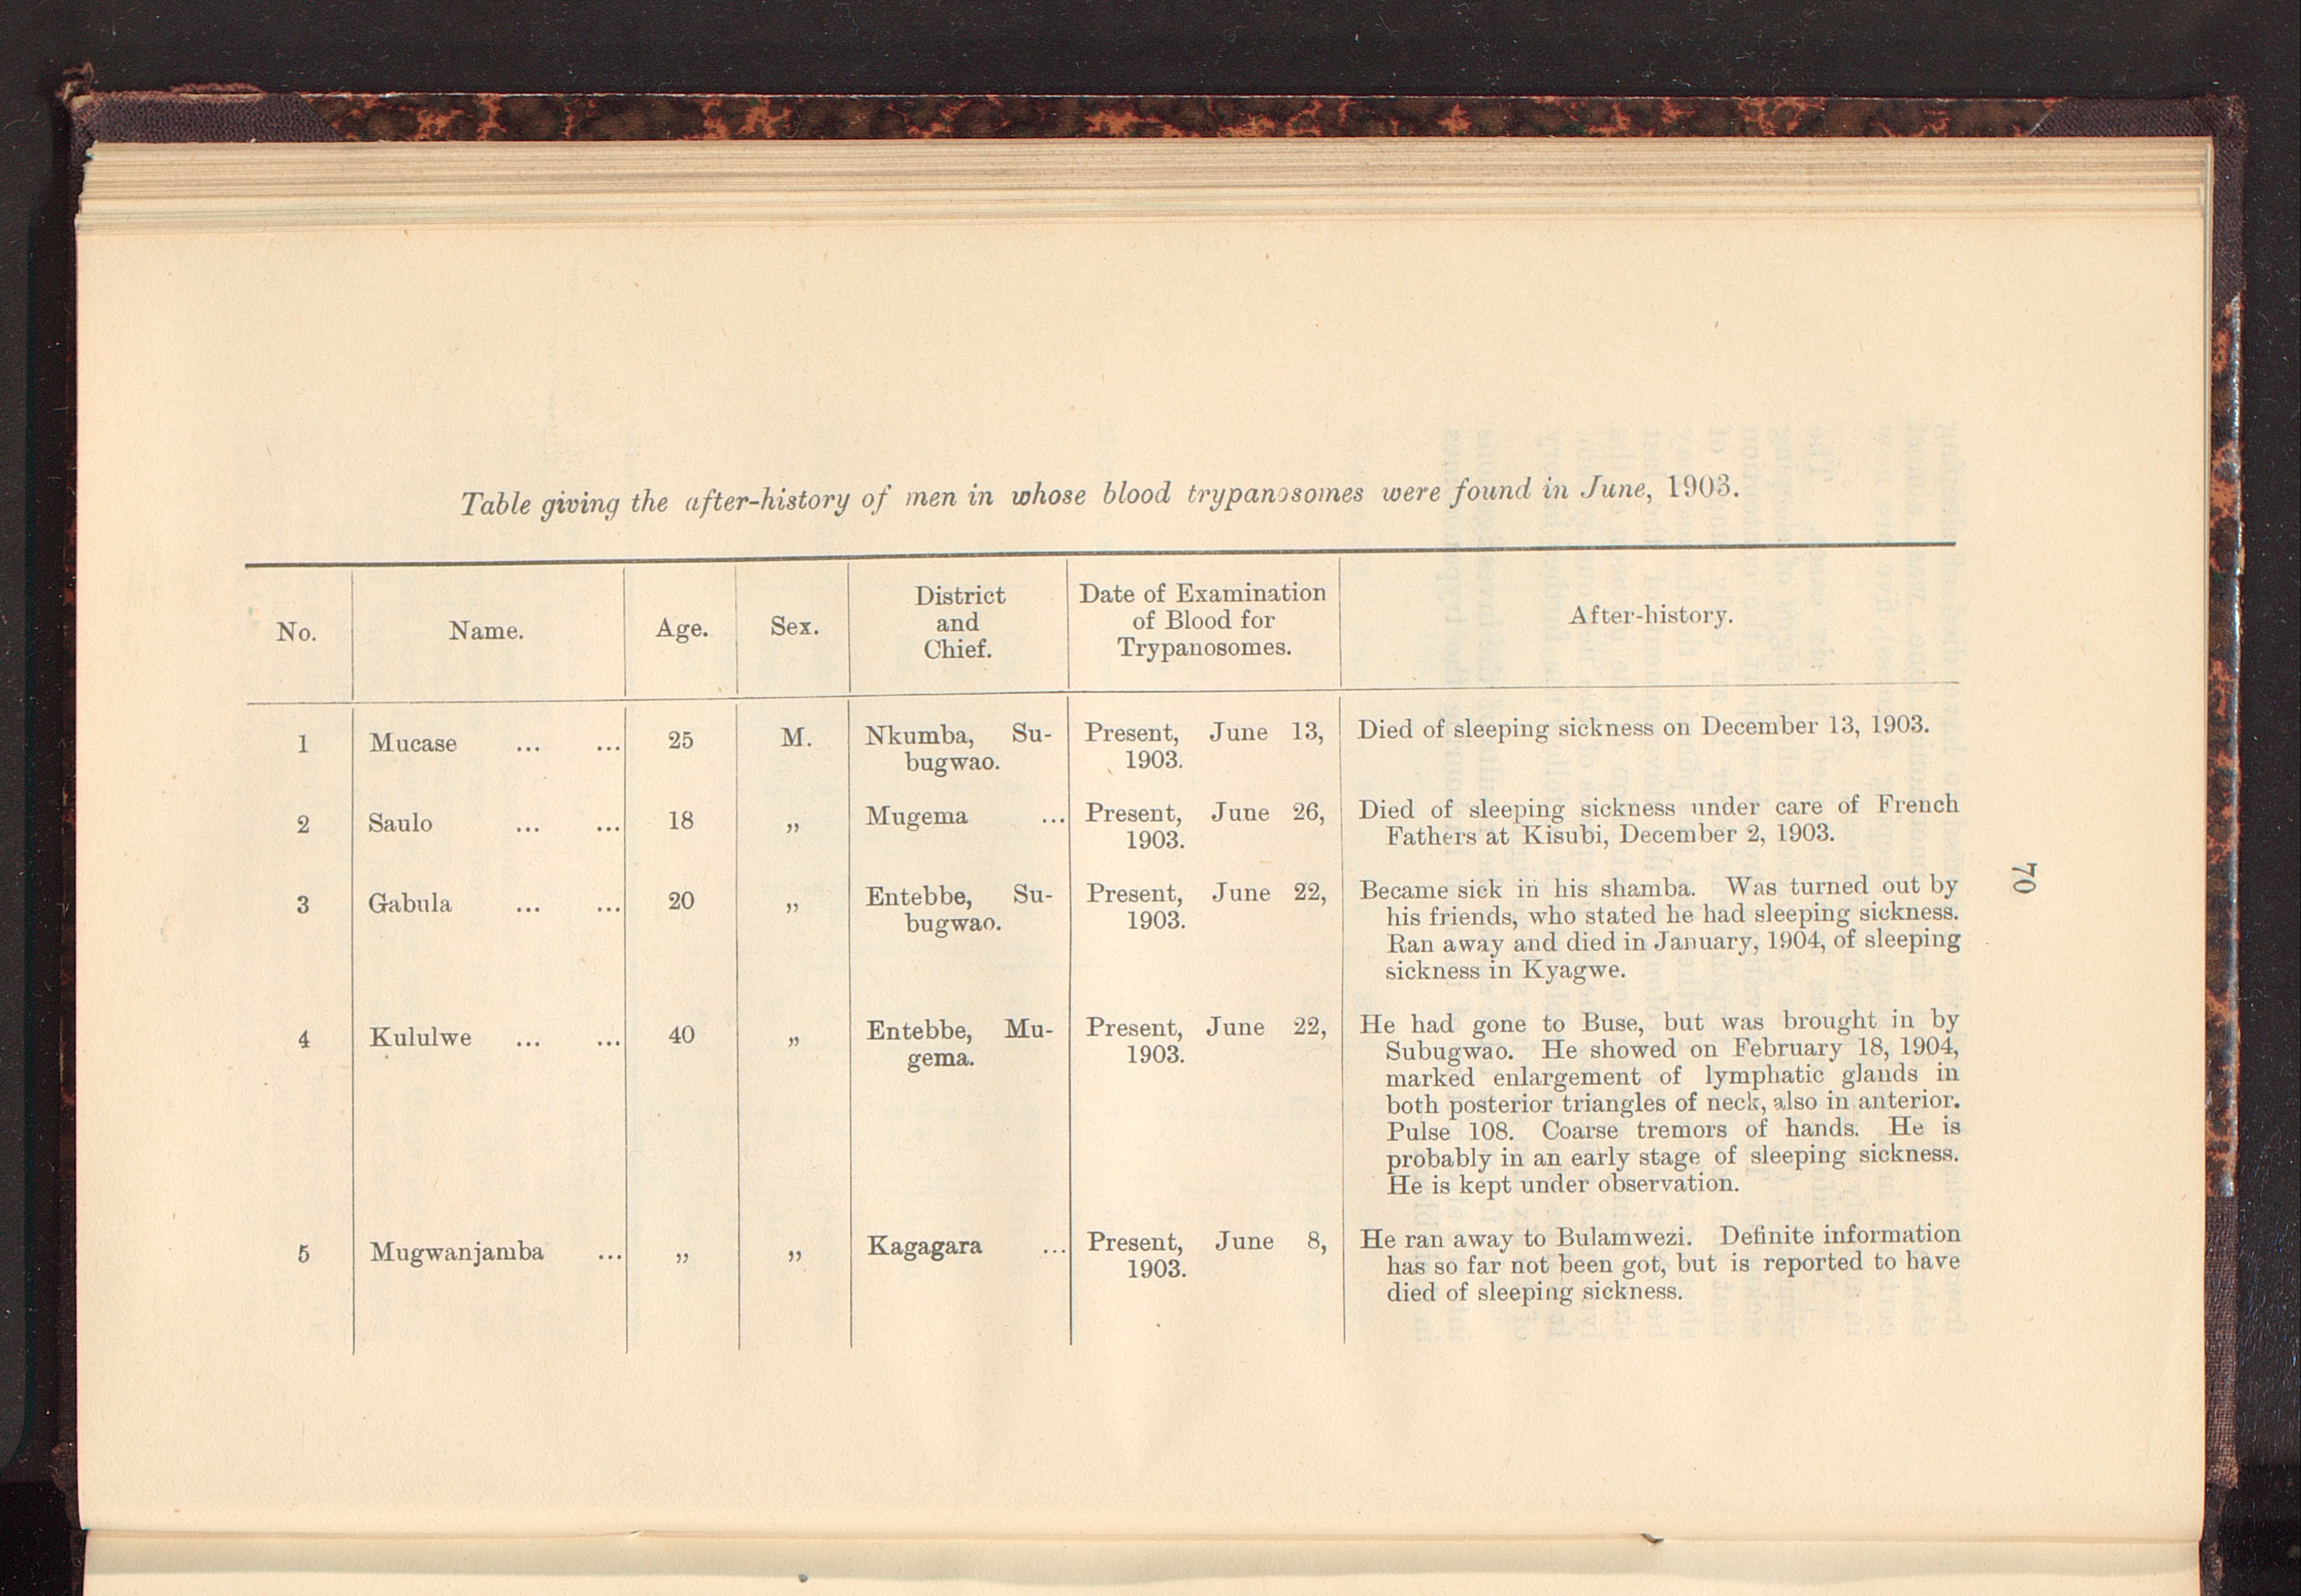 Table giving the after-history of men in whose blood trypanosomes were found in June, 1903.
No.
Name.
Age.
Sex.
District
and
Chief.
Date of Examination
of Blood for
Trypanosomes.
After-history.
1
Mucase ... ...
25
M.
Nkumba, Su-
bugwao.
Present, June 13,
1903.
Died of sleeping sickness on December 13, 1903.
2
Saulo ... ...
18
„
Mugema ...
Present, June 26,
1903.
Died of sleeping sickness under care of French
Fathers at Kisubi, December 2, 1903.
3
Gabula ... ...
20
„
Entebbe, Su-
bugwao.
Present, June 22,
1903.
Became sick in his shamba. Was turned out by
his friends, who stated he had sleeping sickness.
Ran away and died in January, 1904, of sleeping
sickness in Kyagwe.
4
Kululwe ... ...
40
„
Entebbe, Mu-
gema.
Present, June 22,
1903.
He had gone to Buse, but was brought in by
Subugwao. He showed on February 18, 1904,
marked enlargement of lymphatic glands in
both posterior triangles of neck, also in anterior.
Pulse 108. Coarse tremors of hands. He is
probably in an early stage of sleeping sickness.
He is kept under observation.
5
Mugwanjamba ...
„
„
Kagagara ...
Present, June 8,
1903.
He ran away to Bulamwezi. Definite information
has so far not been got, but is reported to have
died of sleeping sickness.
70